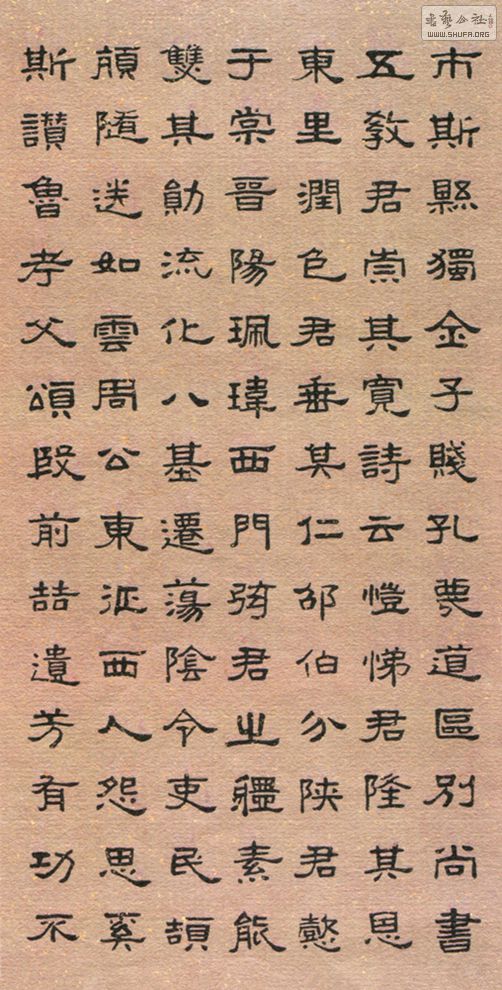 市斯縣獨全子賤孔蔑道區別尚書
五教君崇其寬詩云愷悌君隆其恩
東里潤色君垂其仁邵伯分陝君懿
于棠晉陽珮瑋西門弦君之體素能
雙其勛流化八基遷蕩陰令吏民頡
頏隨送如雲周公東征西人怨思奚
斯讃魯考父頌殷前喆遺芳有功不
WWW.SHUFA.ORG